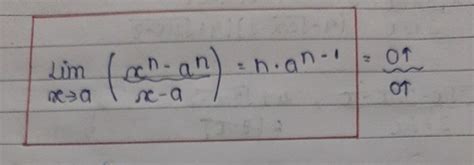 lim x→a (xⁿ - aⁿ / x - a) = n · aⁿ⁻¹ = 0↑ / 0↑